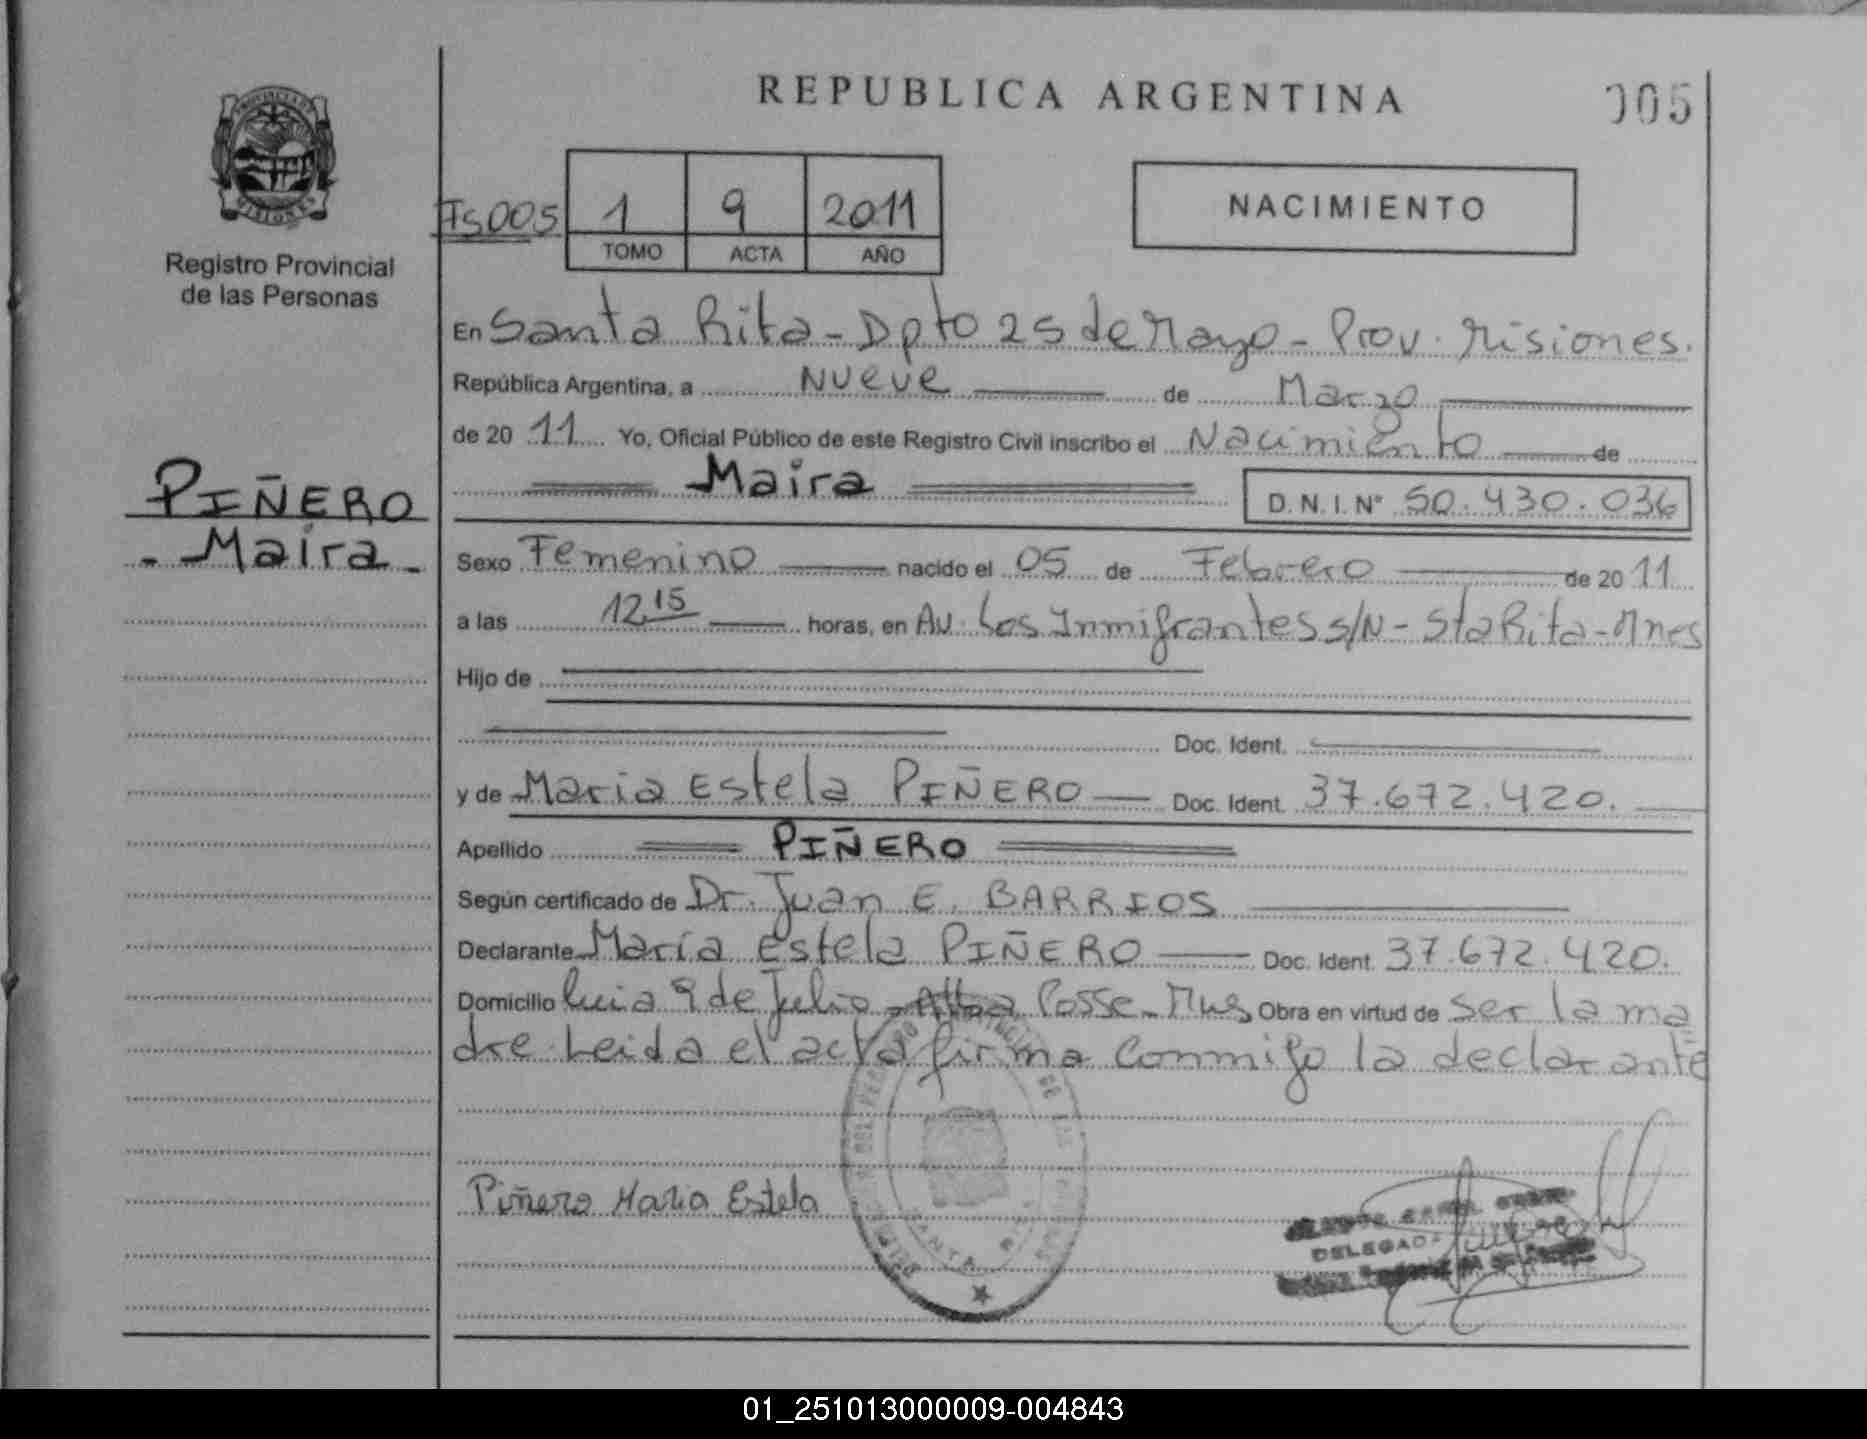 REPUBLICA ARGENTINA
005
PROVINCIA DE MISIONES
Registro Provincial
de las Personas
Fs005
1 9 2011
TOMO ACTA AÑO
NACIMIENTO
En Santa Rita - Dpto 25 de Mayo - Prov. Misiones.
República Argentina, a Nueve de Marzo
de 20 11 Yo, Oficial Público de este Registro Civil inscribo el Nacimiento de
Maira D.N.I. Nº 50.430.036
PIÑERO
- Maira -
Sexo Femenino nacido el 05 de Febrero de 20 11
a las 12 15 horas, en Av. Los Inmigrantes s/N - Sta Rita - Mnes
Hijo de
Doc. Ident.
y de Maria Estela PIÑERO Doc. Ident. 37.672.420.
Apellido PIÑERO
Según certificado de Dr. Juan E. BARRIOS
Declarante María Estela PIÑERO Doc. Ident. 37.672.420.
Domicilio 9 de Julio - Alba Posse - Obra en virtud de ser la ma
dre Leida el acta firma conmigo la declarante
Piñero Maria Estela
DELEGADA
01_251013000009-004843